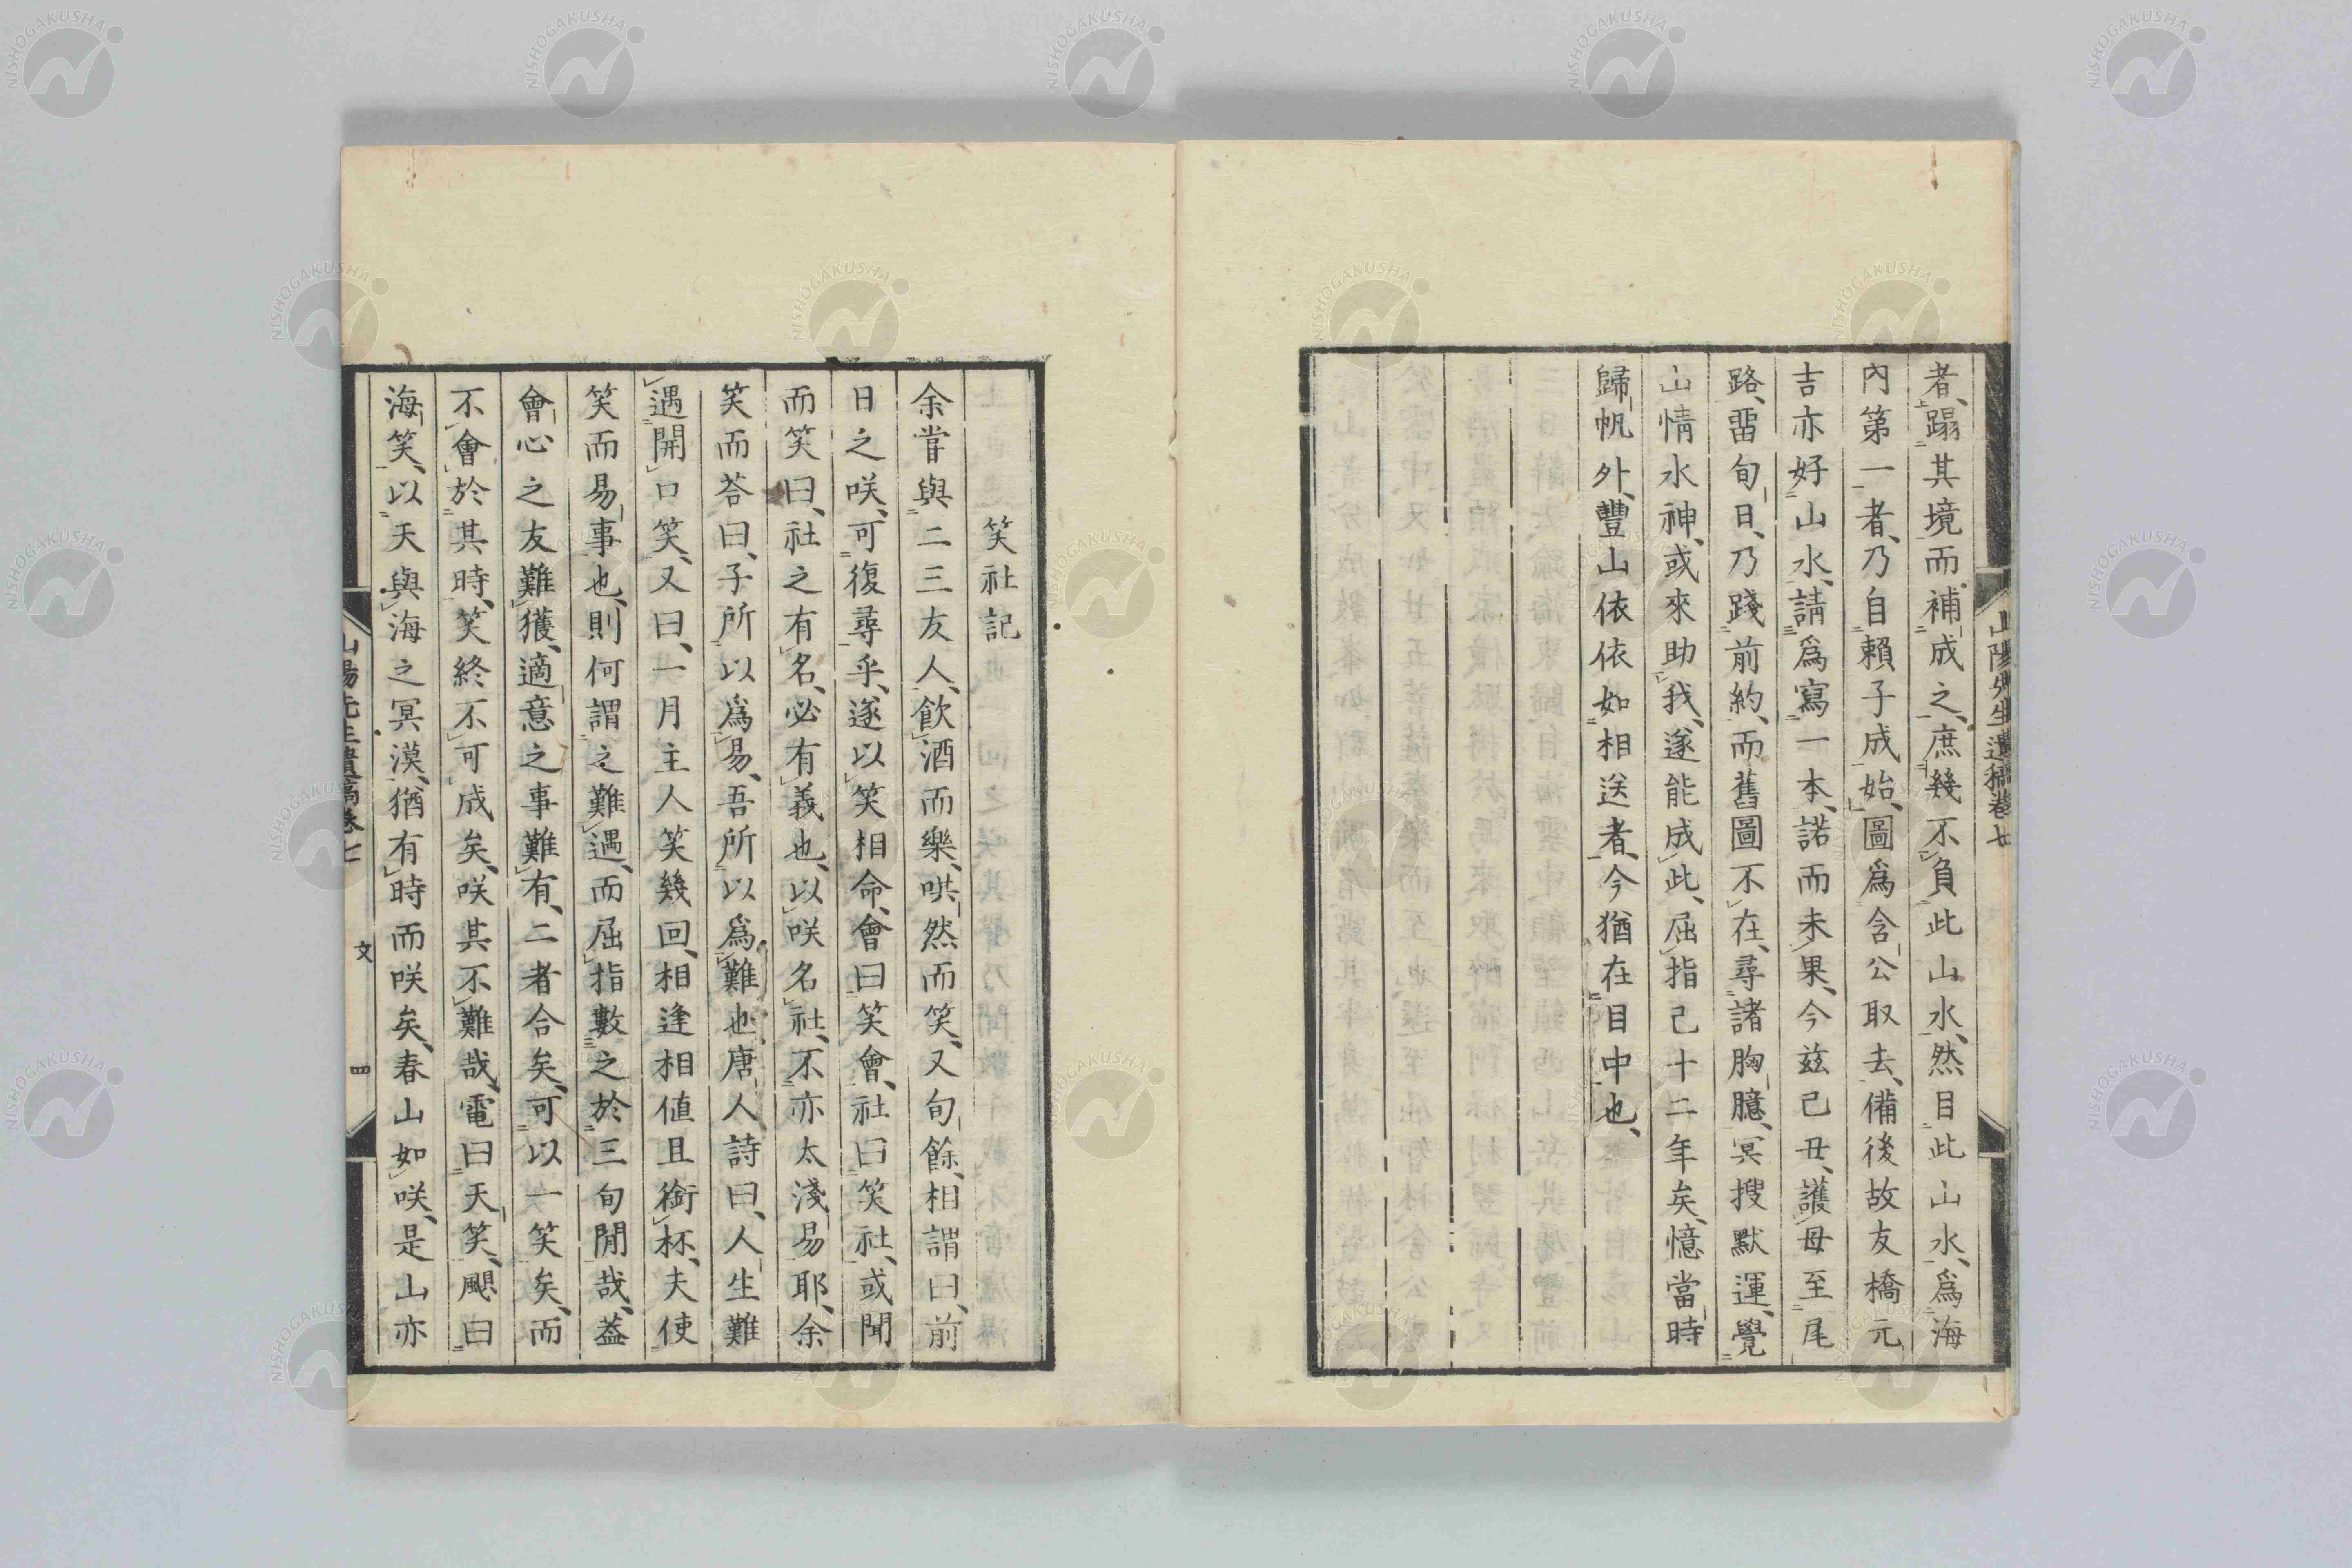 山陽先生遺稿卷七
者、蹋其境而補成之、庶幾不負此山水、然目此山水、爲海
內第一者、乃自賴子成始、圖爲含公取去、備後故友橋元
吉亦好山水、請爲寫一本、諾而未果、今茲己丑、護母至尾
路、畱旬日、乃踐前約、而舊圖不在、尋諸胸臆、冥搜默運、覺
山情水神、或來助我、遂能成此、屈指已十二年矣、憶當時
歸帆外、豐山依依如相送者、今猶在目中也、
笑社記
余嘗與二三友人、飮酒而樂、哄然而笑、又旬餘、相謂曰、前
日之咲、可復尋乎、遂以笑相命、會曰笑會、社曰笑社、或聞
而笑曰、社之有名、必有義也、以咲名社、不亦太淺易耶、余
笑而荅曰、子所以爲易、吾所以爲難也、唐人詩曰、人生難
遇開口笑、又曰、一月主人笑幾回、相逢相値且銜杯、夫使
笑而易事也、則何謂之難遇、而屈指數之於三旬閒哉、葢
會心之友難獲、適意之事難有、二者合矣、可以一笑矣、而
不會於其時、笑終不可成矣、咲其不難哉、電曰天笑、颶曰
海笑、以天與海之冥漠、猶有時而咲矣、春山如咲、是山亦
山陽先生遺稿卷七 文 四
NISHOGAKUSHA